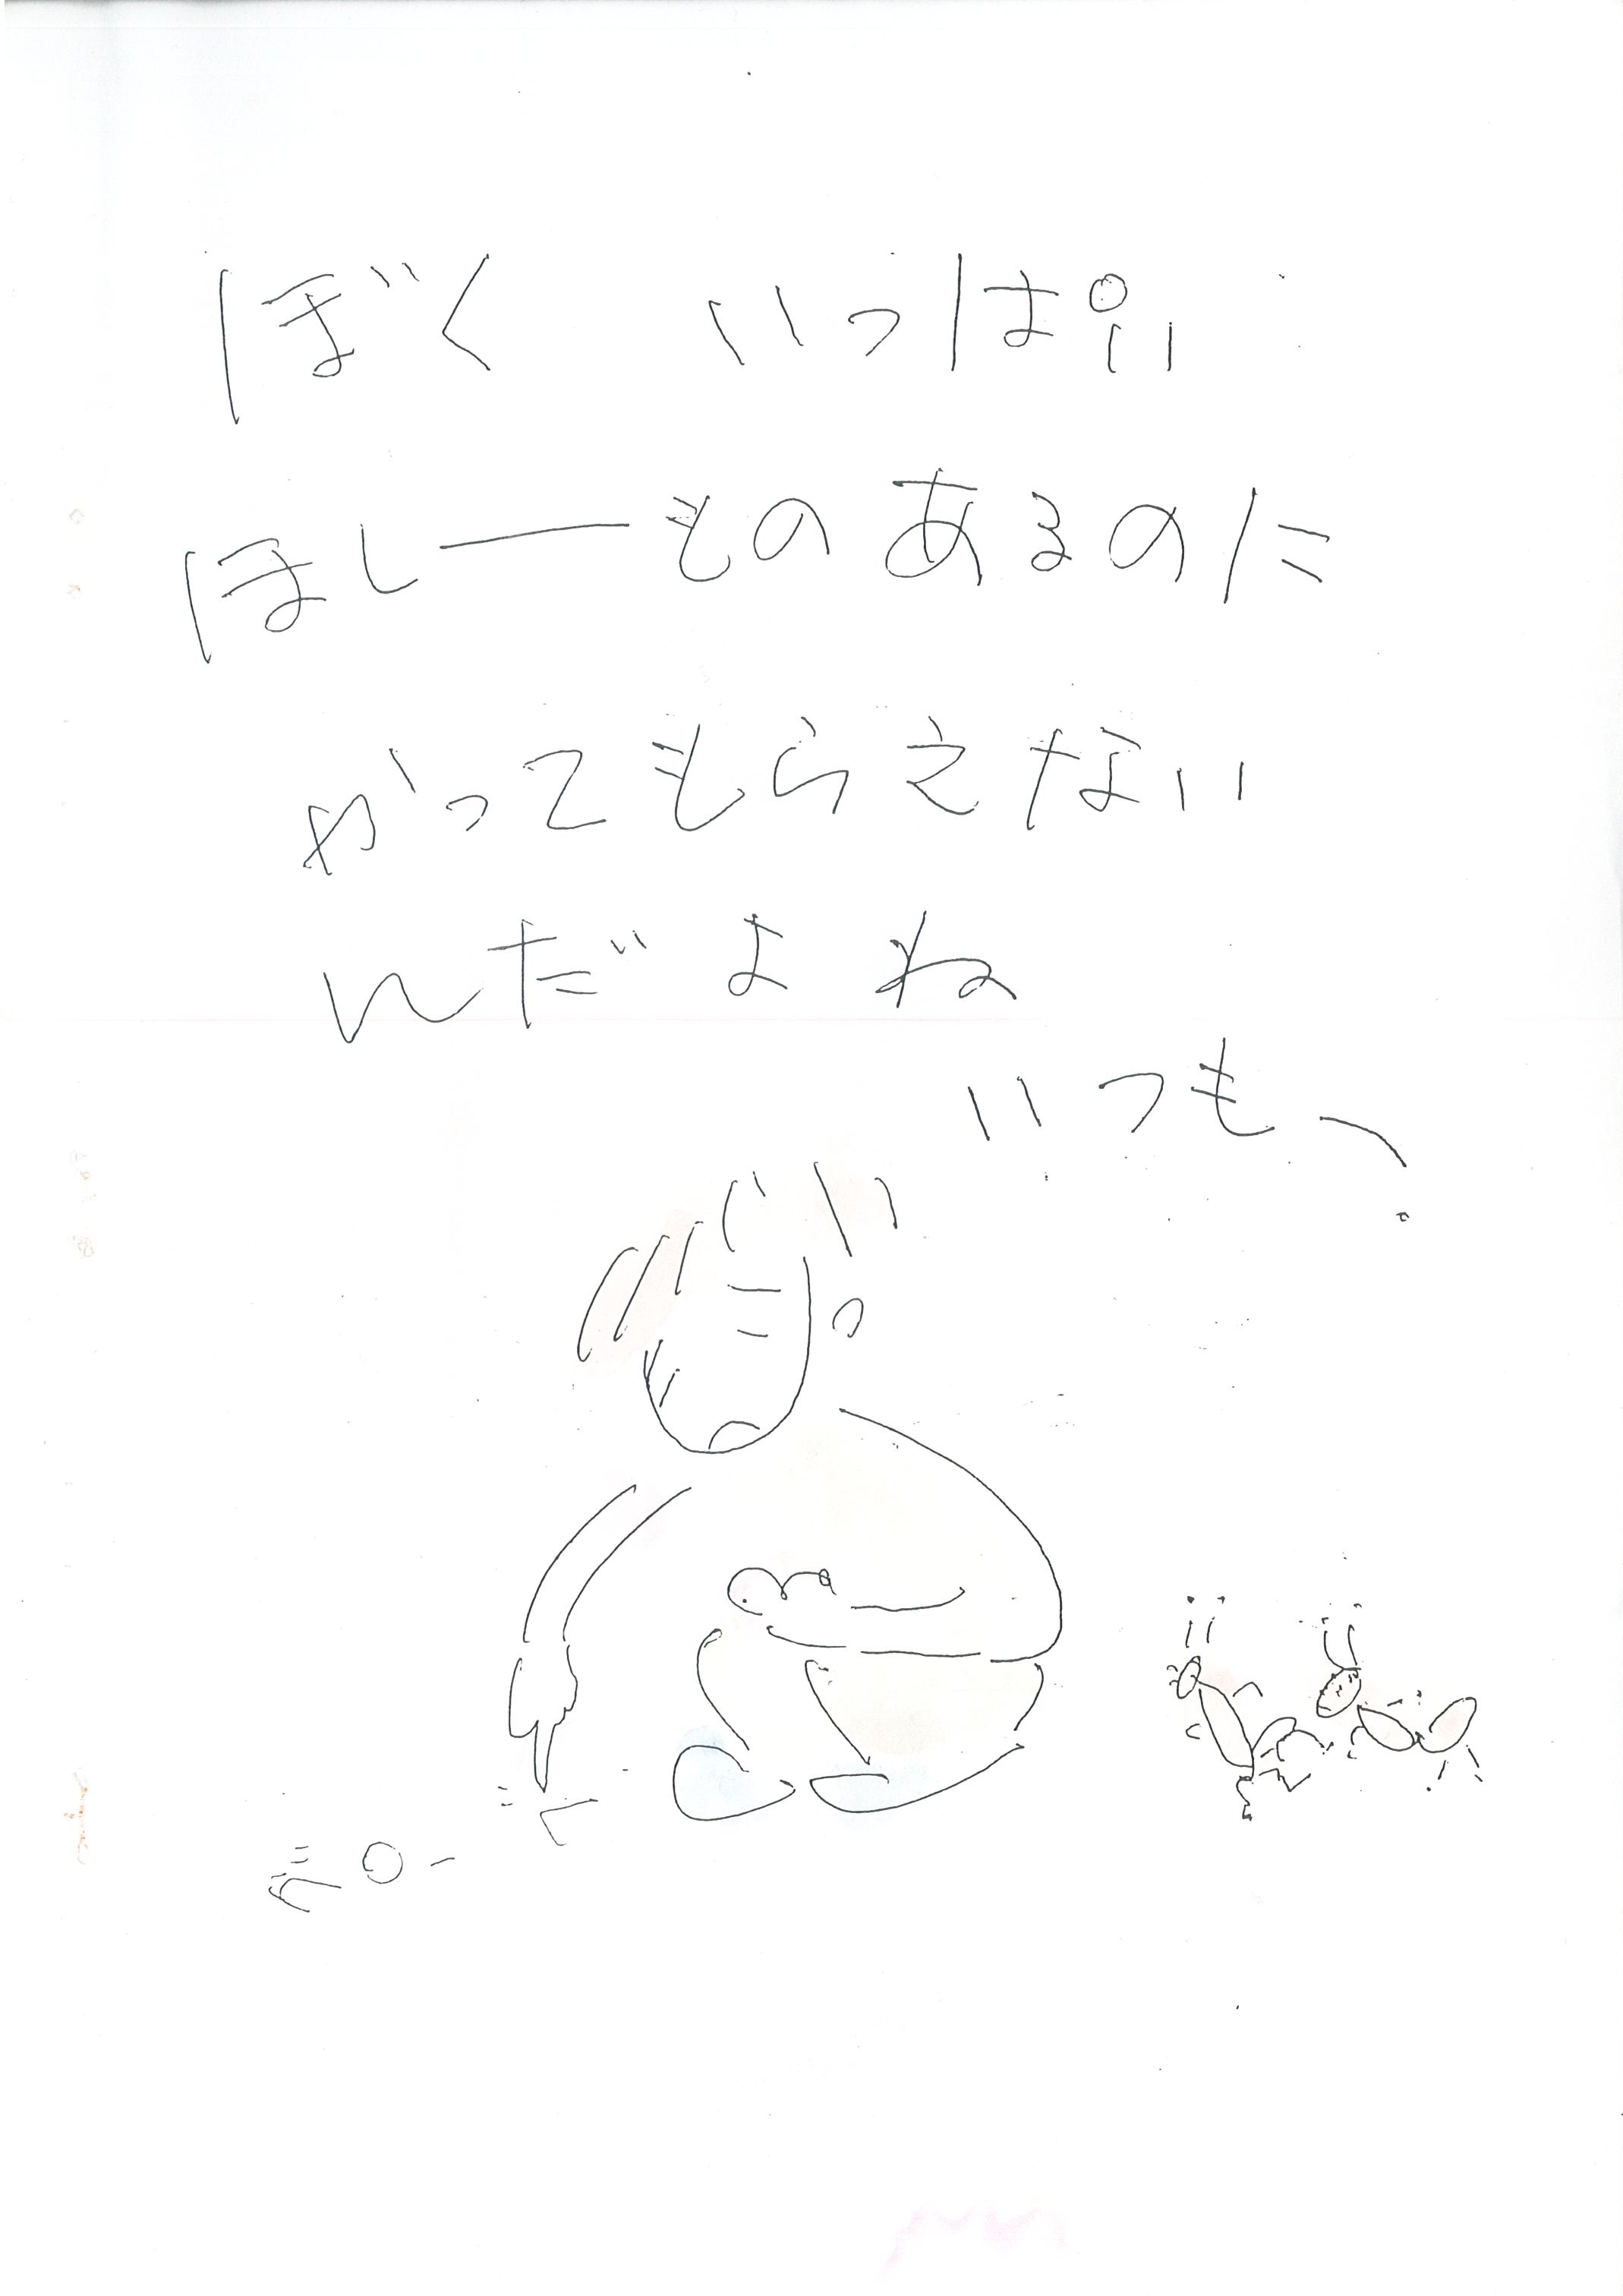 ぼく いっぱい
ほしーものあるのに
かってもらえない
んだよね
いつも、